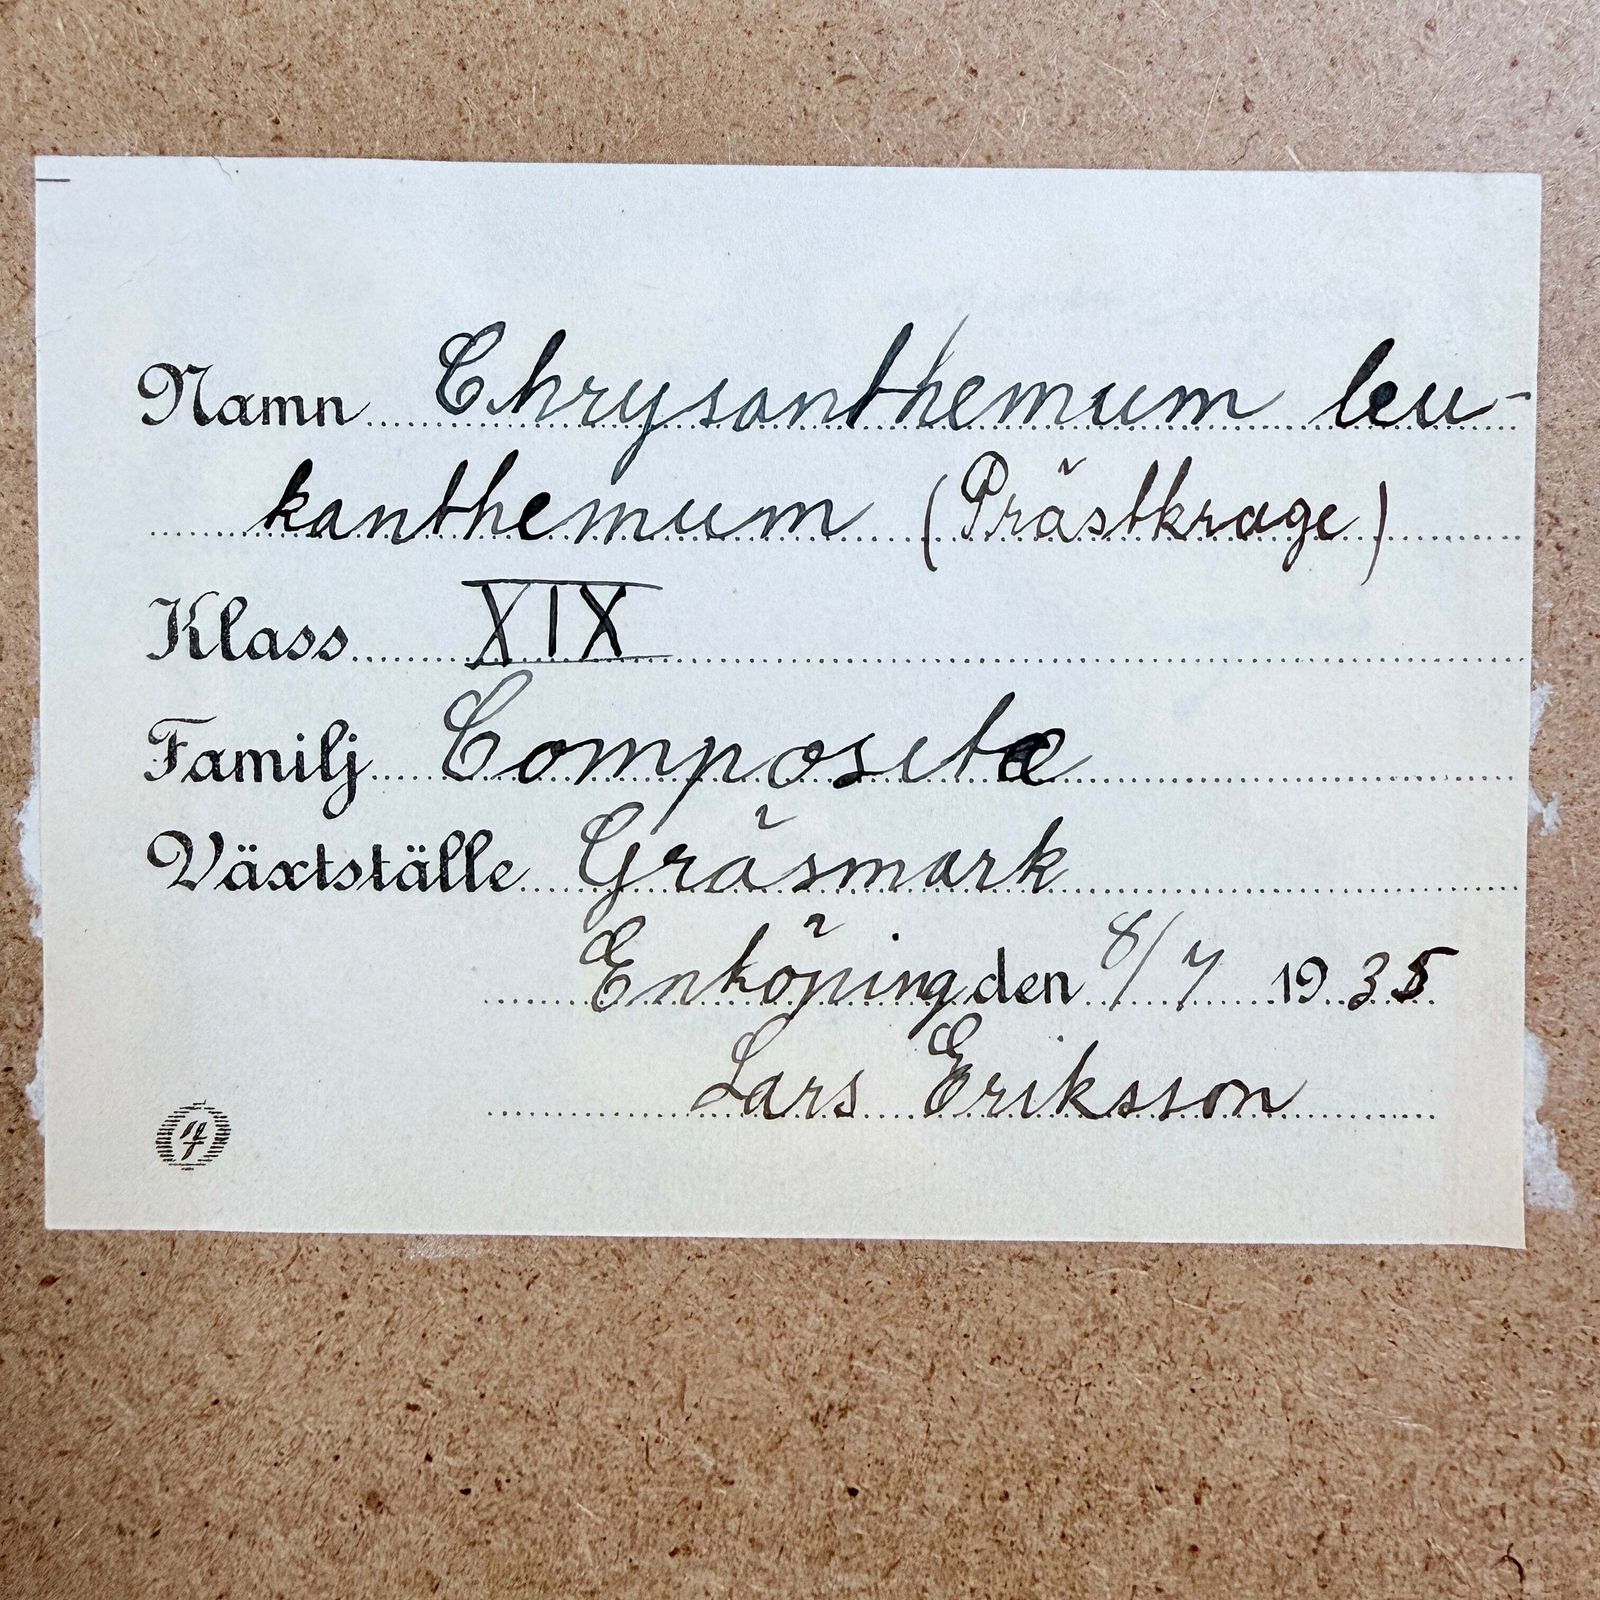 Namn Chrysanthemum leu-
kanthemum (Prästkrage)
Klass XIX
Familj Compositæ
Växtställe Gräsmark
Enköping den 8/7 1935
Lars Eriksson